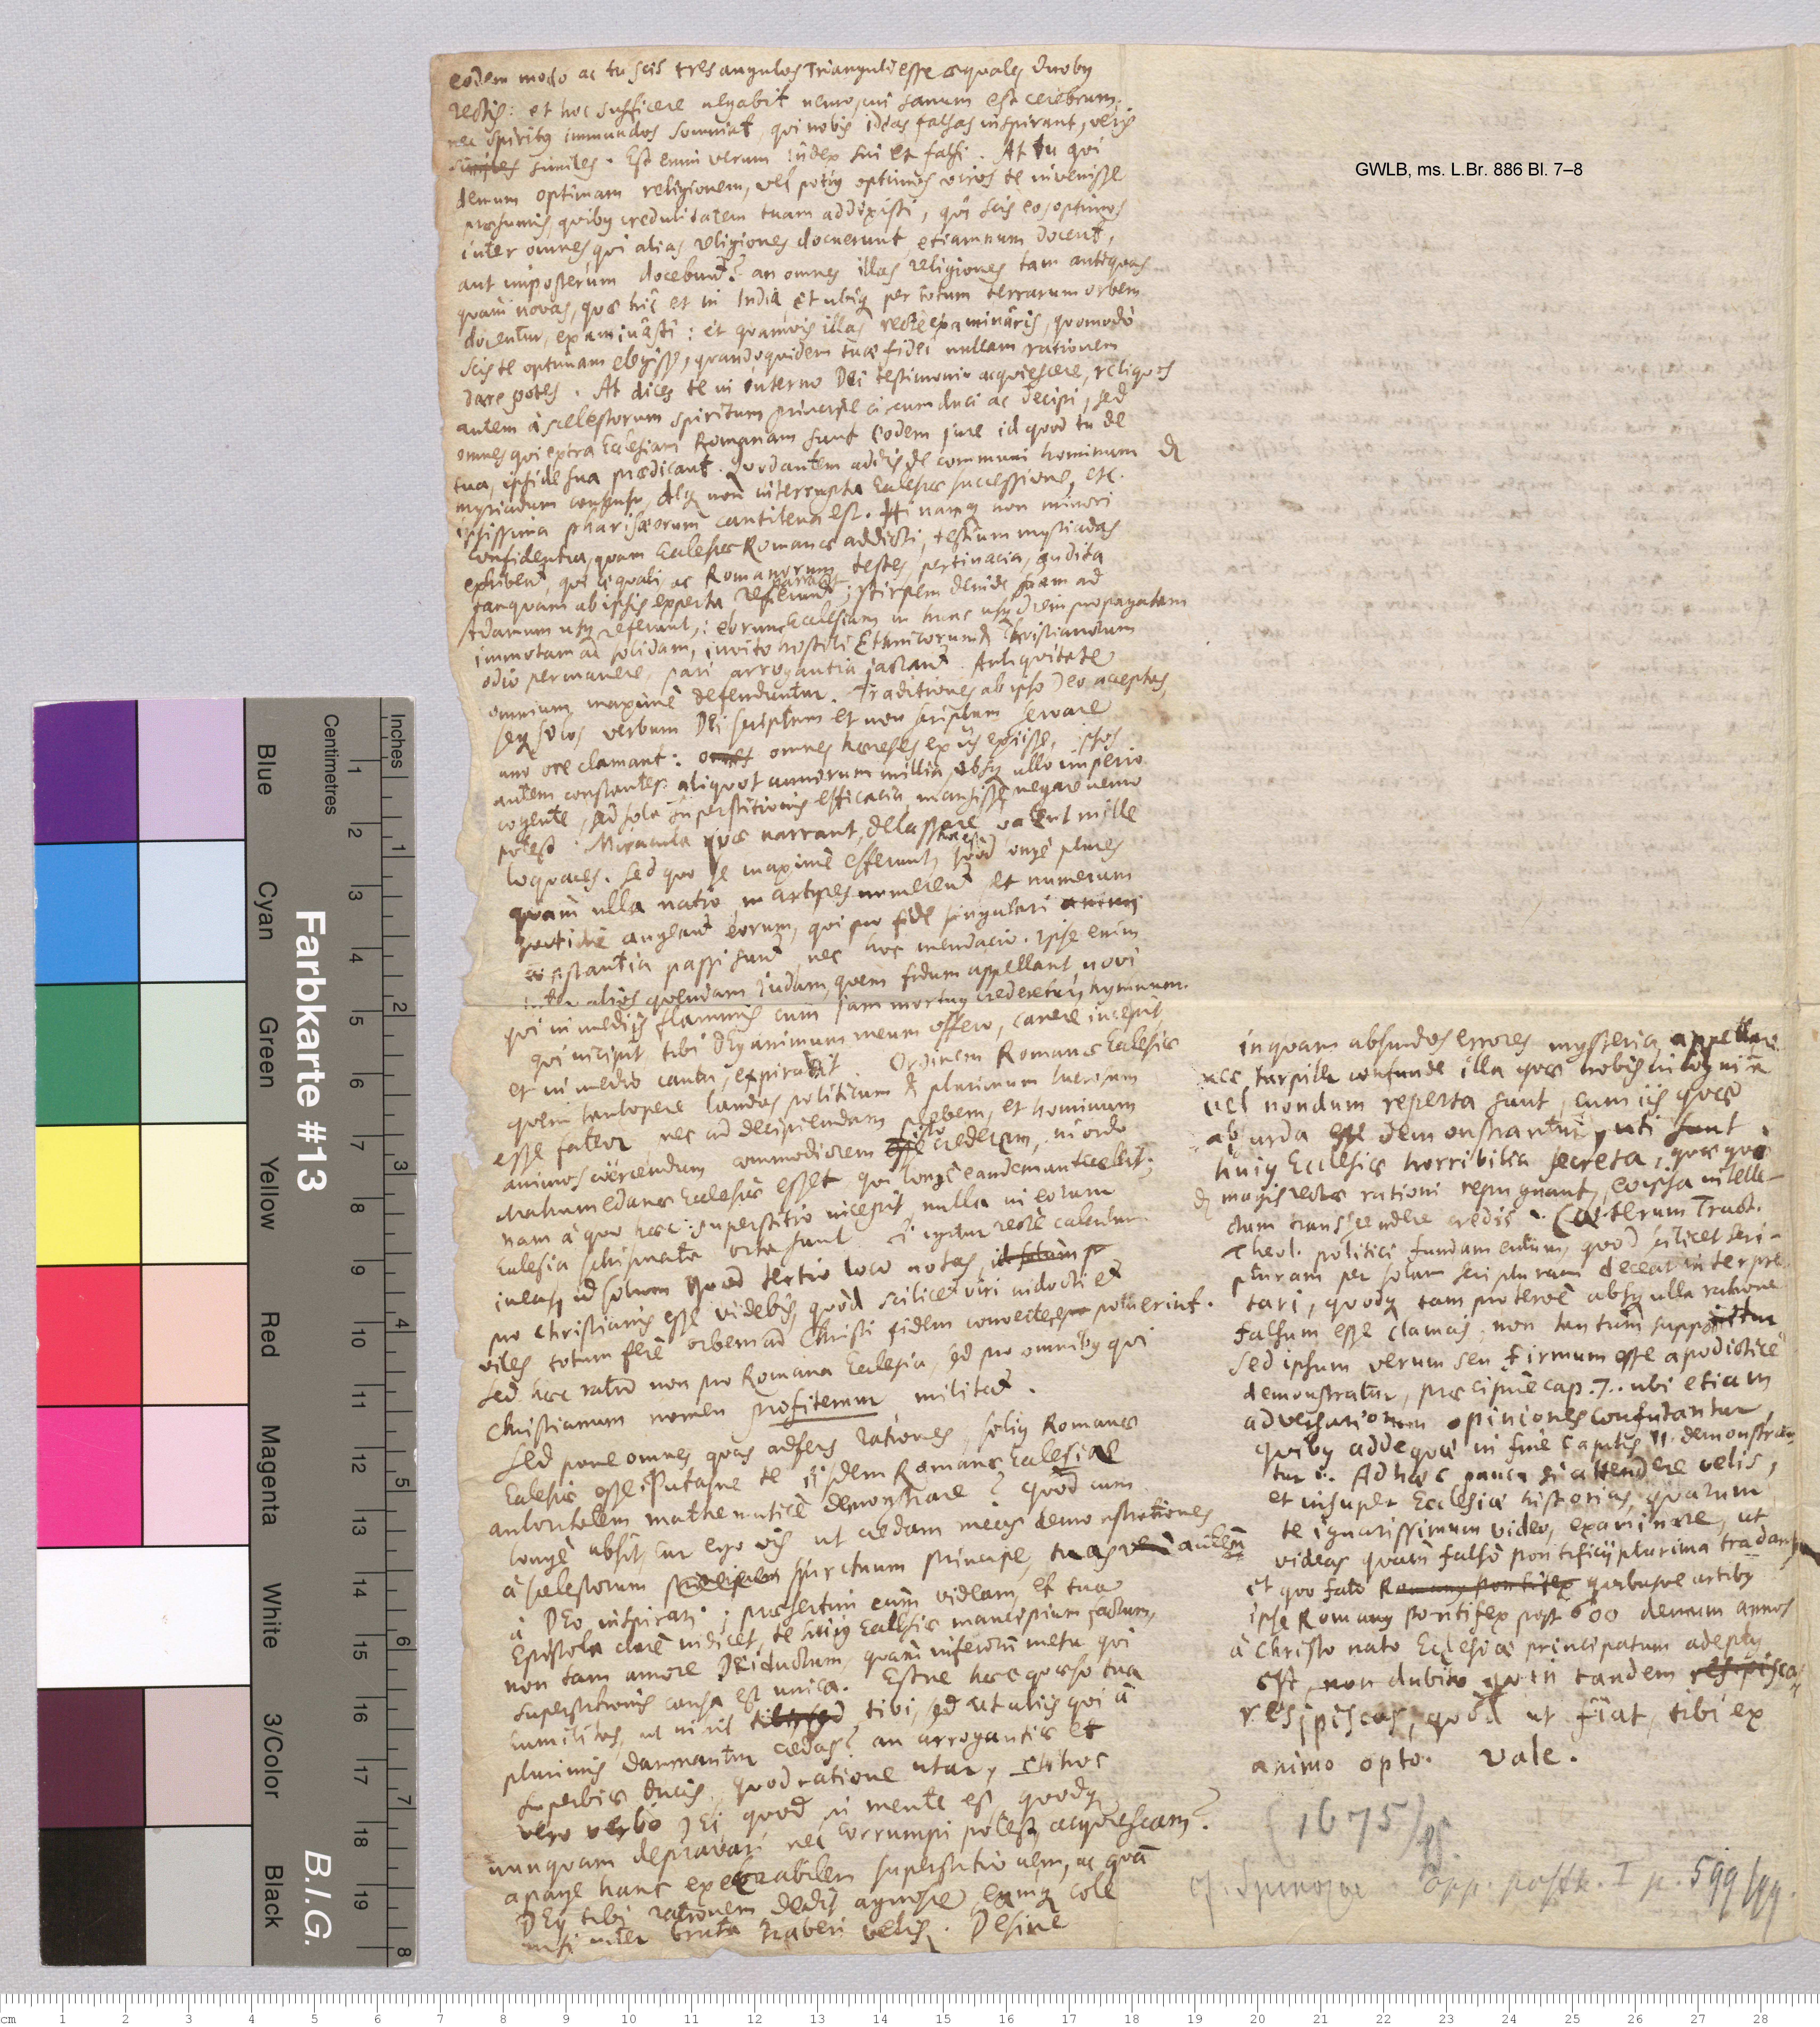 GWLB, ms. L.Br. 886 Bl. 7–8
eodem modo ac tu scis tres angulos Trianguli esse æquales duobq
rectis: et hoc sufficere negabit nemo, cui sanum est cerebrum
nec spiritq immundos somniat, qui nobis ideas falsas inspirant, veris
similes. Est enim verum index sui et falsi. At tu qui
demum optimam religionem, vel potiq optimos viros te invenisse
præsumis, quibq credulitatem tuam addixisti, quî scis eos optimos
inter omnes qui alias religiones docuerunt, etiamnum docent,
aut imposterum docebunt? an omnes illas religiones tam antiquas
quàm novas, quæ hîc et in India et ubiq per totum terrarum orbem
docentur, examinâsti: et quamvis illas rectè examinâris, quomodo
scis te optimam elegisse, quandoquidem tuæ fidei nullam rationem
dare potes. At dices te in interno Dei testimonio acquiescere, reliquos
autem à scelestorum spirituum principe circumduci ac decipi, sed
omnes qui extra Ecclesiam Romanam sunt eodem jure id quod tu de
tua, ipsi de sua prædicant. Quod autem addis de communi hominum
myriadum consensu, deq non interrupta Ecclesiæ successione, etc.
ipsissima pharisæorum cantilena est. Hi namq non minori
confidentia, quam Ecclesiæ Romanæ addicti, testium myriadas
exhibent, qui æquali ac Romanorum testes, pertinacia, audita
tanquam ab ipsis experta referunt; stirpem deinde suam ad
Adamum usq referunt; eorum Ecclesiam in hunc usq diem propagatam
immotam ac solidam, invito hostili Ethnicorum & Christianorum
odio permanere, pari arrogantia jactant. Antiquitate
omnium maximè defenduntur. Traditiones ab ipso Deo acceptas,
seq solos verbum Dei scriptum et non scriptum servare
uno ore clamant: omnes hæreses ex iis exiisse, ipsos
autem constantes aliquot annorum millia, absq ullo imperio
cogente, sed sola superstitionis efficacia, mansisse, negare nemo
potest. Miracula quæ narrant, delassare valent mille
loquaces. Sed quo se maximè efferunt, quod longè plures
quàm ulla natio, martyres numerent et numerum
quotidie augeant eorum, qui pro fide singulari animi
constantia passi sunt, nec hoc mendacio. Ipse enim
inter alios quendam Judam, quem fidum appellant, novi
qui in mediis flammis cum jam mortuq crederetur, hymnum.
qui incipit, tibi Deq animum meum offero, canere incepit
et in medio cantu, expiravit. Ordinem Romanæ Ecclesiæ
quem tantopere laudas politicum & plurimum lucrosum
esse fateor nec ad decipiendam plebem, et hominum
animos coërcendum commodiorem isto crederem, ni ordo
Mahumedanæ Ecclesiæ esset qui longè eandem antecellit;
nam à quo hæc superstitio incepit, nulla in eorum
Ecclesia schismata orta sunt. Si igitur rectè calculum
ineas, id solum quod tertio loco notas,
pro Christianis esse videbis, quòd scilicet viri indocti et
viles totum ferè orbem ad Christi fidem convertere potuerint.
Sed hæc ratio non pro Romana Ecclesia, sed pro omnibq qui
Christianum nomen profitentur militat.
Sed pone omnes quas adfers rationes, soliq Romanæ
Ecclesiæ esse: Putasne te iisdem Romanæ Ecclesiæ
autoritatem mathematicè demonstrare? quod cum
longè absit, cur ergo vis ut credam meas demonstrationes
à scelestorum spirituum principe, tuas autem
à DEo inspirari; præsertim cùm videam, et tua
Epistola clarè indicet, te hujq Ecclesiæ mancipium factum,
non tam amore Dei ductum, quàm inferorum metu qui
superstitionis causa est unica. Estne hæc quæso tua
humilitas, ut nihil tibi, sed ut aliis qui à
plurimis damnantur credas? an arrogantiæ et
superbiæ ducis, quod ratione utar, et hoc
vero verbo DEi quod in mente est quodq
nunquam depravari nec corrumpi potest, acquiescam?
apage hanc execrabilem superstitionem, ac quam
DEq tibi rationem dedit agnosce, eamq cole
nisi inter bruta haberi velis. Desine
inquam absurdos errores mysteria appellare
nec turpiter confunde illa quæ nobis incognita
vel nondum reperta sunt, cum iis quæ
absurda esse demonstrantur, uti sunt
hujq Ecclesiæ horribilia secreta, quæ quo
magis rectæ rationi repugnant, eo ipsa intelle-
ctum transcendere credis. Cæterum Tract.
Theol. politici fundamentum, quod scilicet scri-
pturam per solam scripturam debeat interpre
tari, quodq tam protervè absq ulla ratione
falsum esse clamas, non tantum supponitur
sed ipsum verum seu firmum esse apodicticè
demonstratur, præcipuè cap. 7. ubi etiam
adversariorum opiniones confutantur,
quibq adde quæ in fine capitis 15 demonstran
tur. Ad hæc pauca si attendere velis,
et insuper Ecclesiæ historias, quarum
te ignarissimum video, examinare, ut
videas quàm falso pontificii plurima tradant,
et quo fato quibusve artibq
ipse Romanq Pontifex post 600 demum annos
à Christo nato Ecclesiæ principatum adeptq
est, non dubito quin tandem
resipiscas, quod ut fiat, tibi ex
animo opto. Vale.
(1675)
cf. Spinozae Opp. posth. I p. 599 sqq.
Farbkarte #13
B.I.G.
Centimetres
Inches
Blue
Cyan
Green
Yellow
Red
Magenta
White
3/Color
Black
1 2 3 4 5 6 7 8 9 10 11 12 13 14 15 16 17 18 19
1 2 3 4 5 6 7 8
cm 1 2 3 4 5 6 7 8 9 10 11 12 13 14 15 16 17 18 19 20 21 22 23 24 25 26 27 28